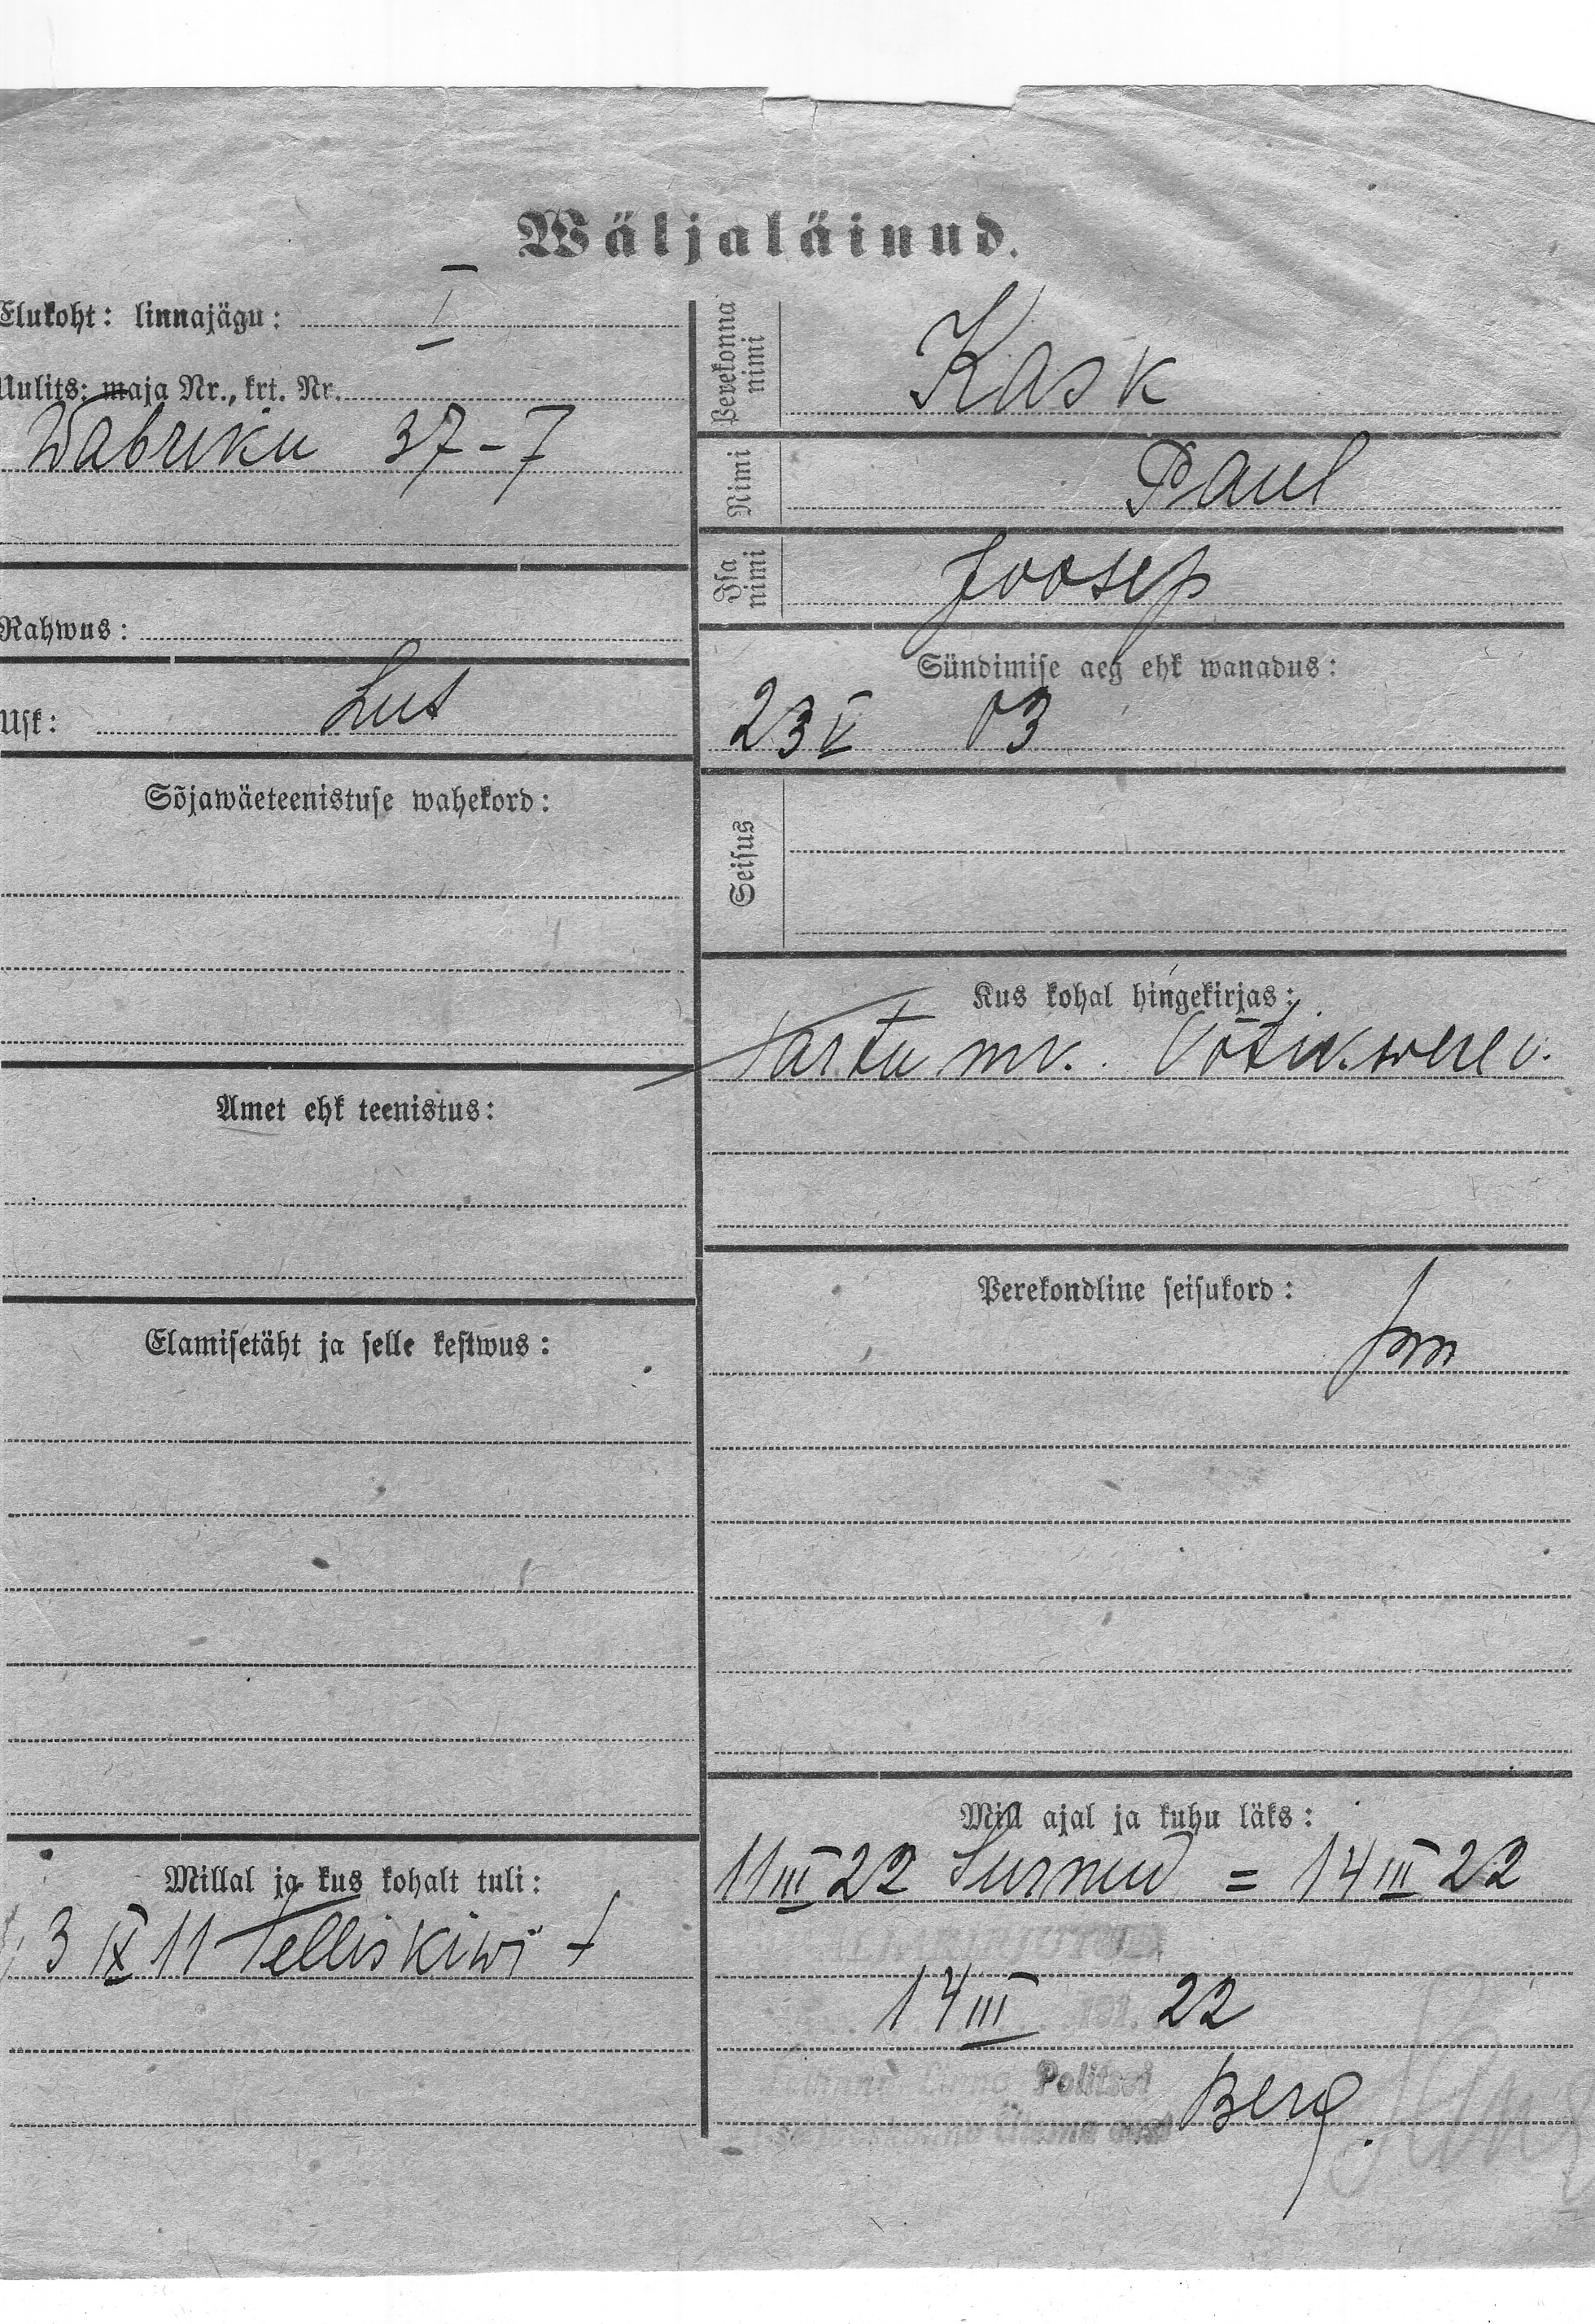 Wäljaläinud.
Elukoht: linnajägu: I
Uulits: maja Nr., krt. Nr.
Wabriku 37-7
Rahwus:
Usk: Lut
Sõjawäeteenistuse wahekord:
Amet ehk teenistus:
Elamisetäht ja selle kestwus:
Millal ja kus kohalt tuli:
3 IX 11 Telliskiwi
Perekonna nimi Kask
Nimi Paul
Isa nimi Joosep
Sündimise aeg ehk wanadus:
23 V 03
Seisus
Kus kohal hingekirjas:
Tartu mk. Wõtikwere v.
Perekondline seisukord:
Mill ajal ja kuhu läks:
11 III 22 Surnud = 14 III 22
14 III 22
Politsei
Berg.